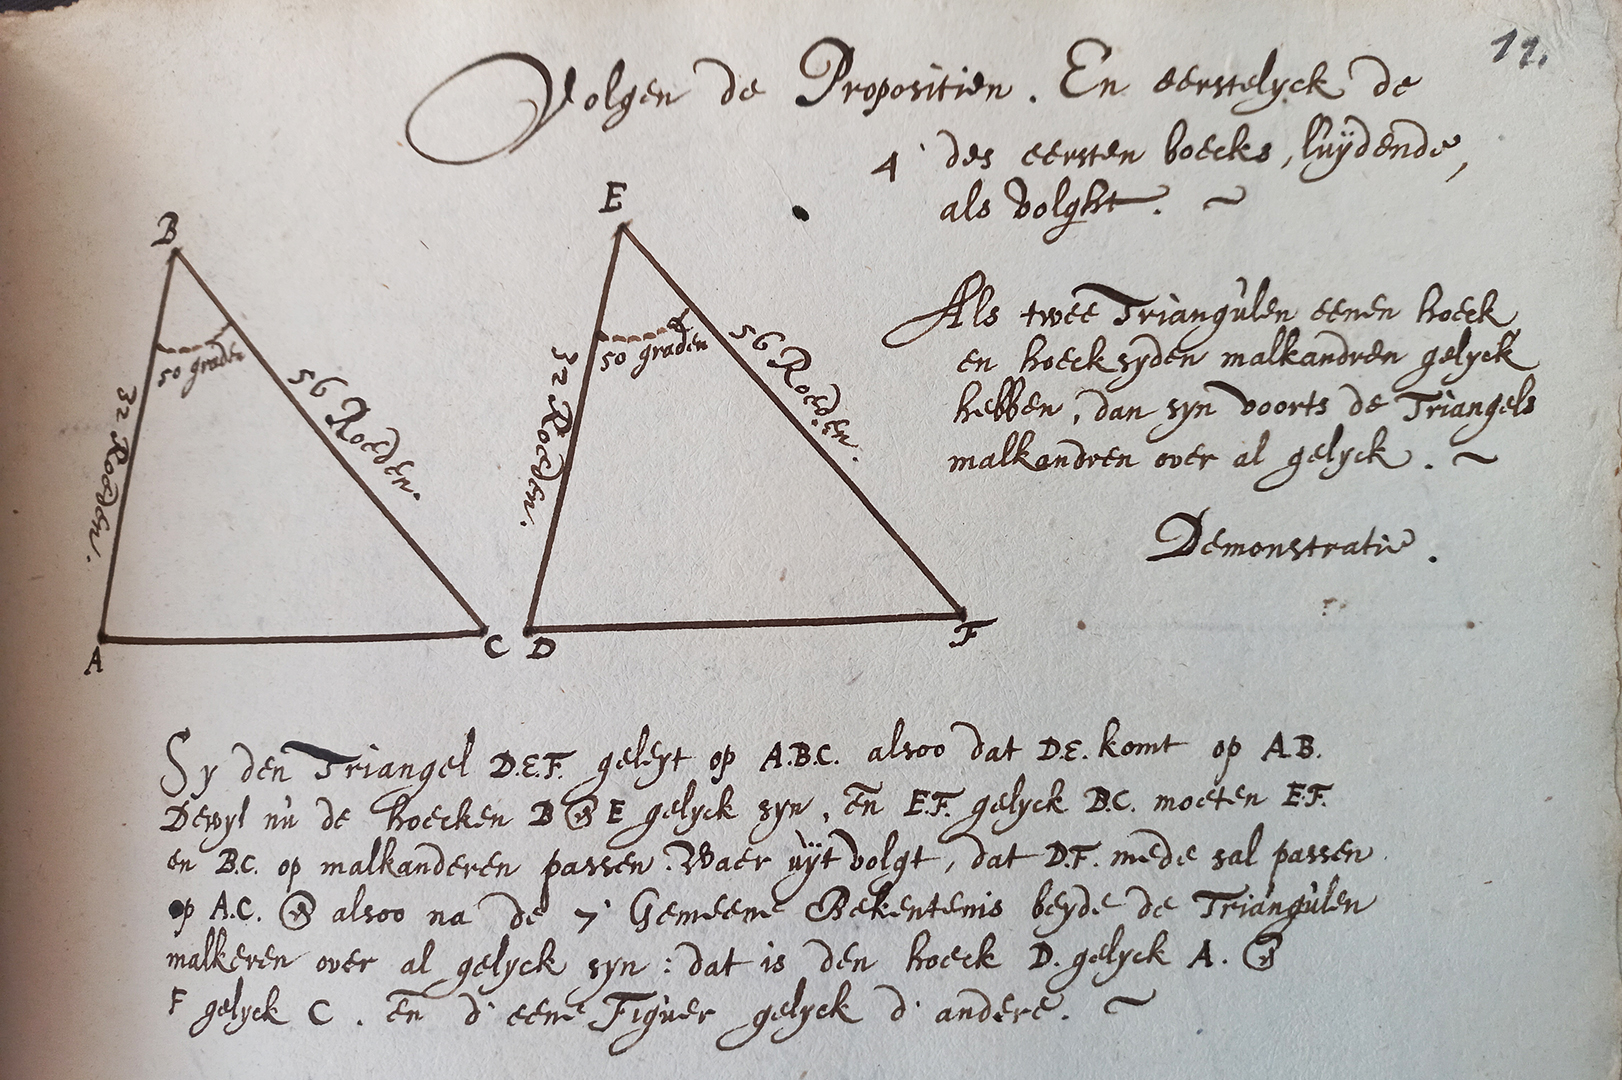 11.
Volgen de Propositien. En eerstelyck de
4 des eersten boecks, luÿdende,
als volght. ~
B
E
50 graden
50 graden
32 Roeden.
56 Roeden.
32 Roeden.
56 Roeden.
A
C
D
F
Als twee Triangùlen eenen hoeck
en hoecksyden malkandren gelyck
hebben, dan syn voorts de Triangels
malkandren over al gelyck. ~
Demonstratie.
Sy den Triangel D.E.F. geleyt op A.B.C. alsoo dat D.E. komt op A.B.
Dewyl nù de hoecken B & E gelyck syn, en̄ E.F. gelyck B.C. moeten E.F.
en B.C. op malkanderen passen. Waer uÿt volgt, dat D.F. mede sal passen
op A.C. & alsoo na de 7 Gemeene Bekentenis beyde de Triangùlen
malkeren over al gelyck syn: dat is den hoeck D. gelyck A. &
F gelyck C. en̄ d' eene Figuer gelyck d' andere. ~